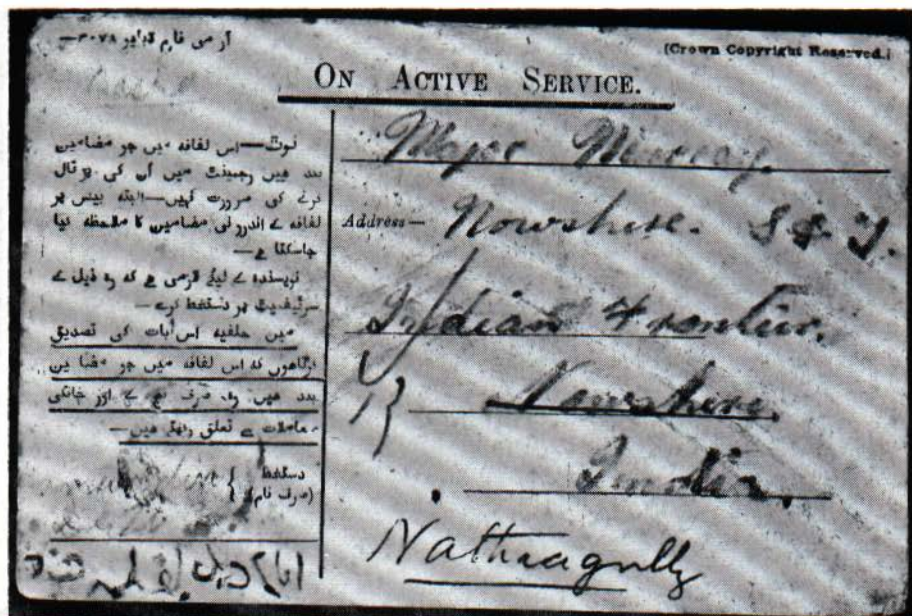 آرمی فارم نمبر ۳۰۷۸—
(Crown Copyright Reserved.)
ON ACTIVE SERVICE.
نوٹ—اس لفافہ میں جو مضامین
بند ہیں رجمینٹ میں اُن کی پڑتال
کرنے کی ضرورت نہیں—البتہ بیس پر
لفافہ کے اندرونی مضامین کا ملاحظہ کیا
جاسکتا ہے—
نویسندہ کے لیئے لازمی ہے کہ وہ ذیل کے
سرٹیفکیٹ پر دستخط کرے—
میں حلفیہ اس بات کی تصدیق
کرتاھوں کہ اس لفافہ میں جو مضا مین
بند ھیں وہ صرف نج کے اور خانگی
معاملات سے تعلق رکھتے ھیں—
دستخط
(صرف نام)
Major Murray.
Address— Nowshere. S & T.
Indian Frontier.
Nowshere.
India.
Nathiagully